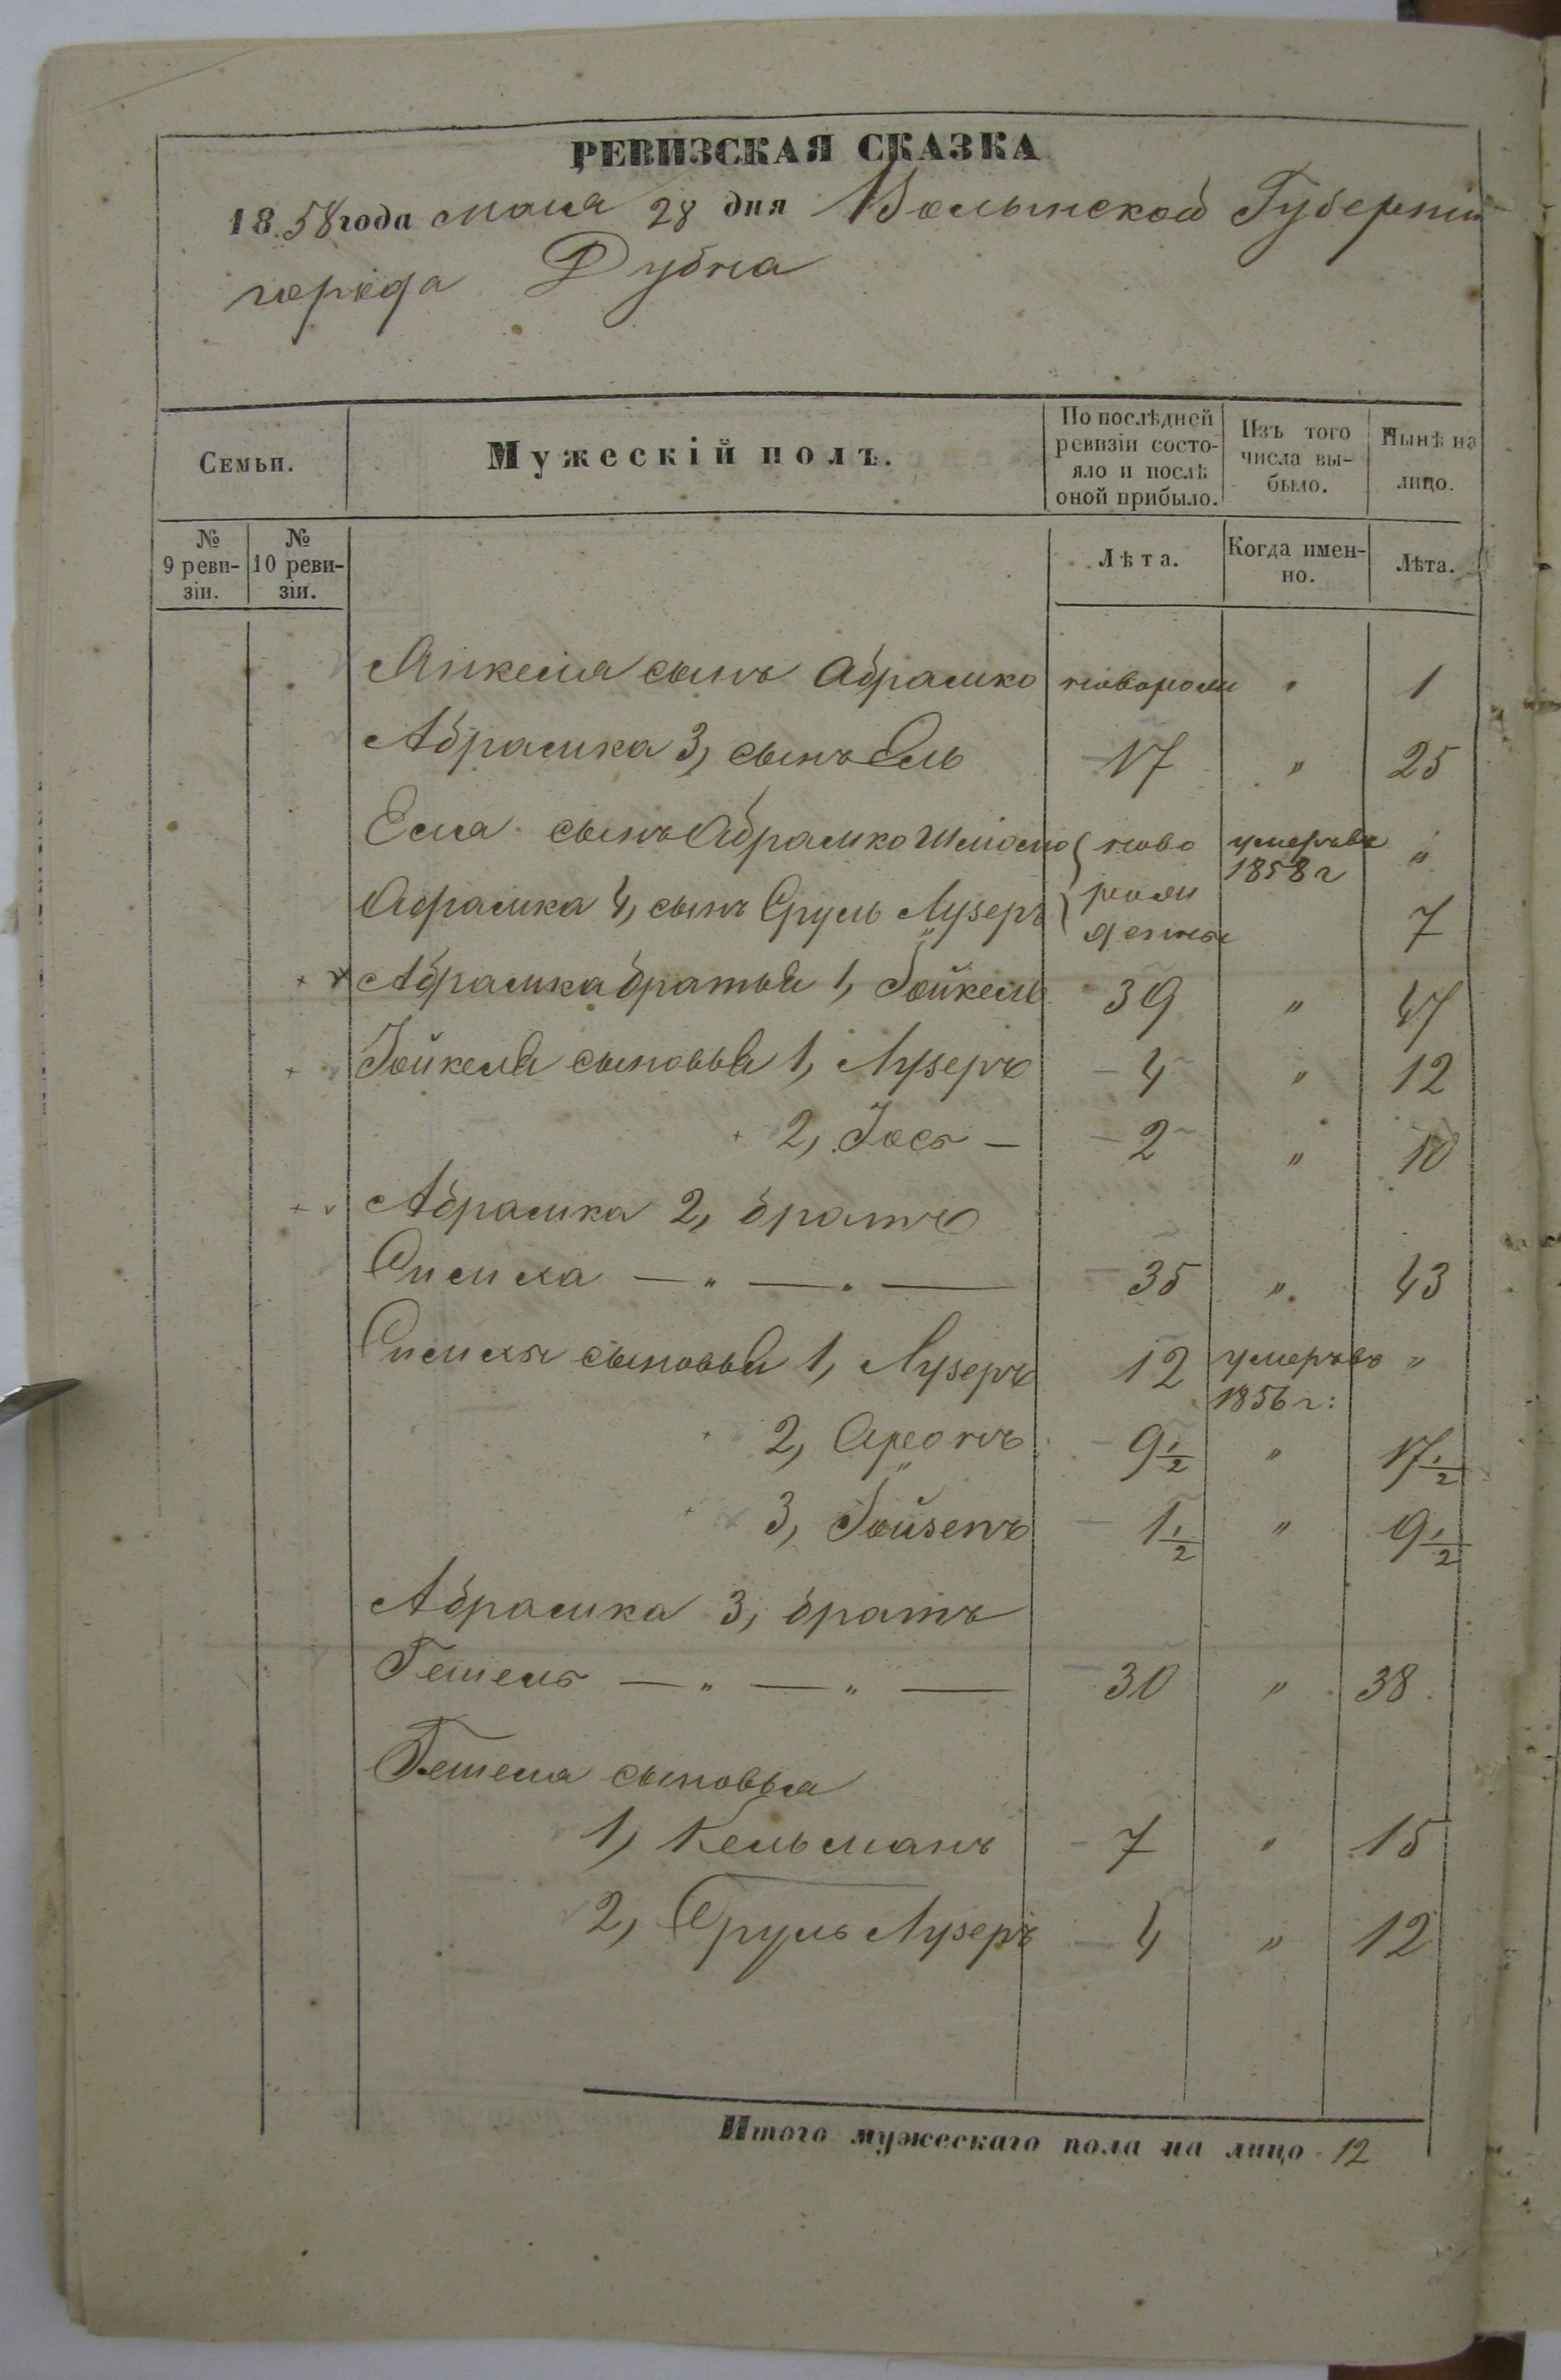 РЕВИЗСКАЯ СКАЗКА
1858 года мая 28 дня Волынской Губерніи
города Дубна
Семьи.
Мужескій полъ.
По послѣдней ревизіи состояло и послѣ оной прибыло.
Изъ того числа выбыло.
Нынѣ на лицо.
№ 9 ревизіи.
№ 10 ревизіи.
Лѣта.
Когда именно.
Лѣта.
Янкеля сынъ Абрамко новорожд " 1
Абрамка 3, сынъ Ель 17 " 25
Еля сынъ Абрамко Шлiомо ново умеръ въ 1858 г "
Абрамка 4, сынъ Сруль Лузеръ рож денные 7
Абрамка братья 1, Гойкель 39 " 47
Гойкеля сыновья 1, Лузеръ 4 " 12
2, Іось — 2 " 10
Абрамка 2, братъ
Симха — " — " — 35 " 43
Симхи сыновья 1, Лузеръ 12 умеръ въ 1856 г: "
2, Аронъ 9 1/2 " 17 1/2
3, Гойзенъ 1 1/2 " 9 1/2
Абрамка 3, братъ
Гешель — " — " — 30 " 38
Гешеля сыновья
1, Кельманъ 7 " 15
2, Сруль Лузеръ 4 " 12
Итого мужескаго пола на лицо 12